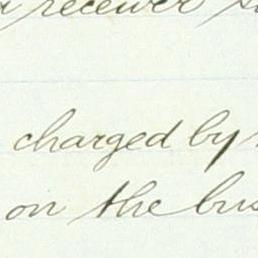 receiver
charged by
on the